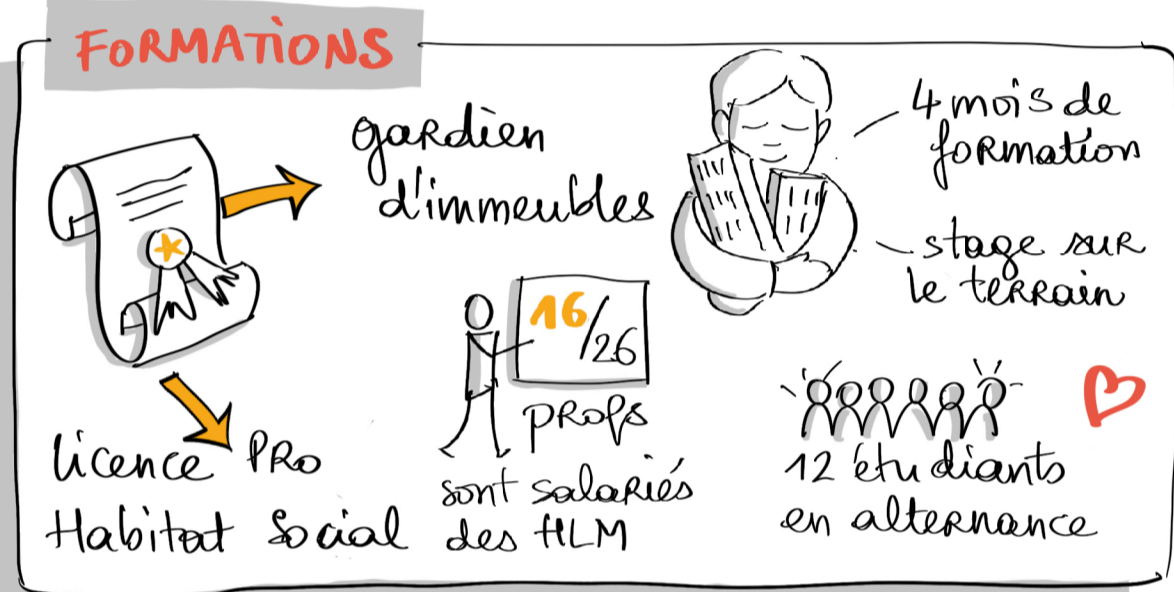 FORMATIONS
gardien
d'immeubles
4 mois de
formation
stage sur
le terrain
licence PRO
Habitat Social
16/26
profs
sont salariés
des HLM
12 étudiants
en alternance